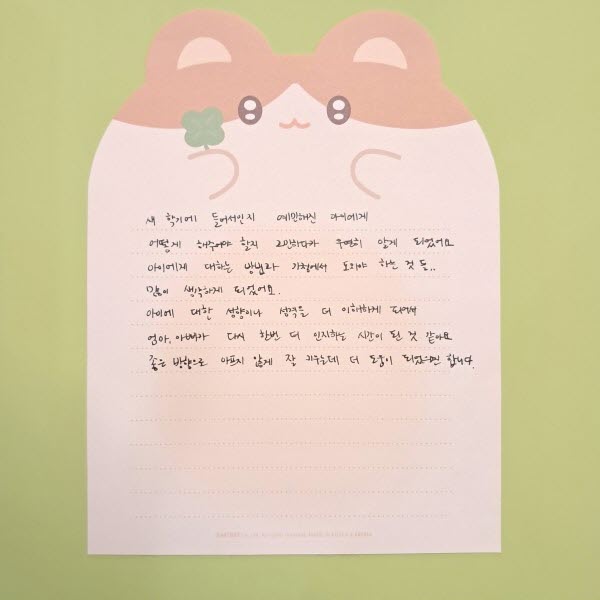 새 학기에 들어서인지 예민해진 아이에게
어떻게 해주어야 할지 고민하다가 우연히 알게 되었어요
아이에게 대하는 방법과 가정에서 도와야 하는 것 등..
많이 생각하게 되었어요.
아이에 대한 성향이나 성격을 더 이해하게 되면서
엄마, 아빠가 다시 한번 더 인지하는 시간이 된 것 같아요
좋은 방향으로 아프지 않게 잘 키우는데 더 도움이 되었으면 합니다.